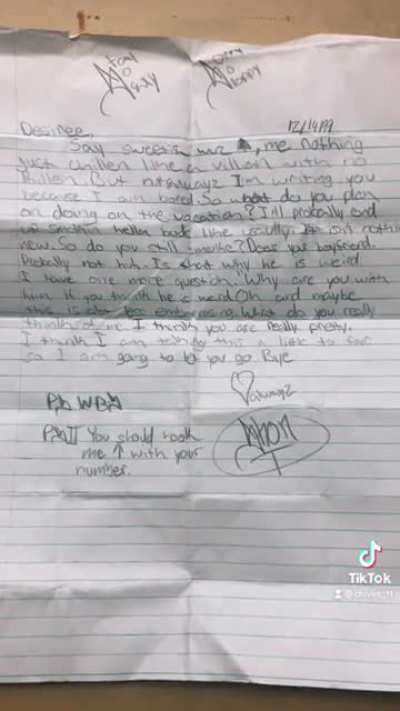 Desiree,
12/14/99
Say sweetie , me nothing
just chillen like a villen with no
But I'm writing you
because I am bored. So what do you plan
on doing on the vacation? I'll probally end
up smokin hella bud like usually. It isn't nothin
new. So do you still smoke? Does your boyfriend.
Probally not huh. Is that why he is weird.
I have one more question. Why are you with
him if you think he a nerd. Oh and maybe
this is What do you really
think of me I think you are really pretty.
I think I am taking this a little to far
so I am going to let you go. Bye
alwayz
You should hook
me ↑ with your
number.
TikTok